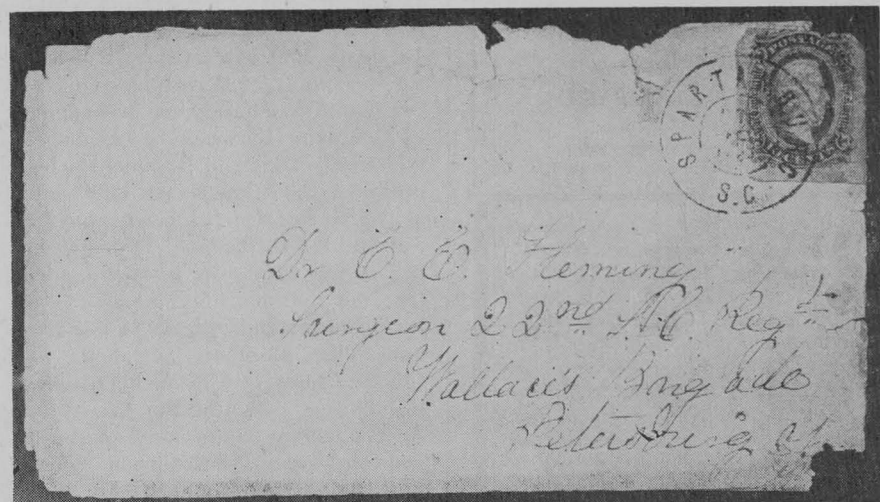 SPART
S.C
Dr E. E. Fleming
Surgeon 22nd S.C. Regt
Wallace's Brigade
Petersburg Va